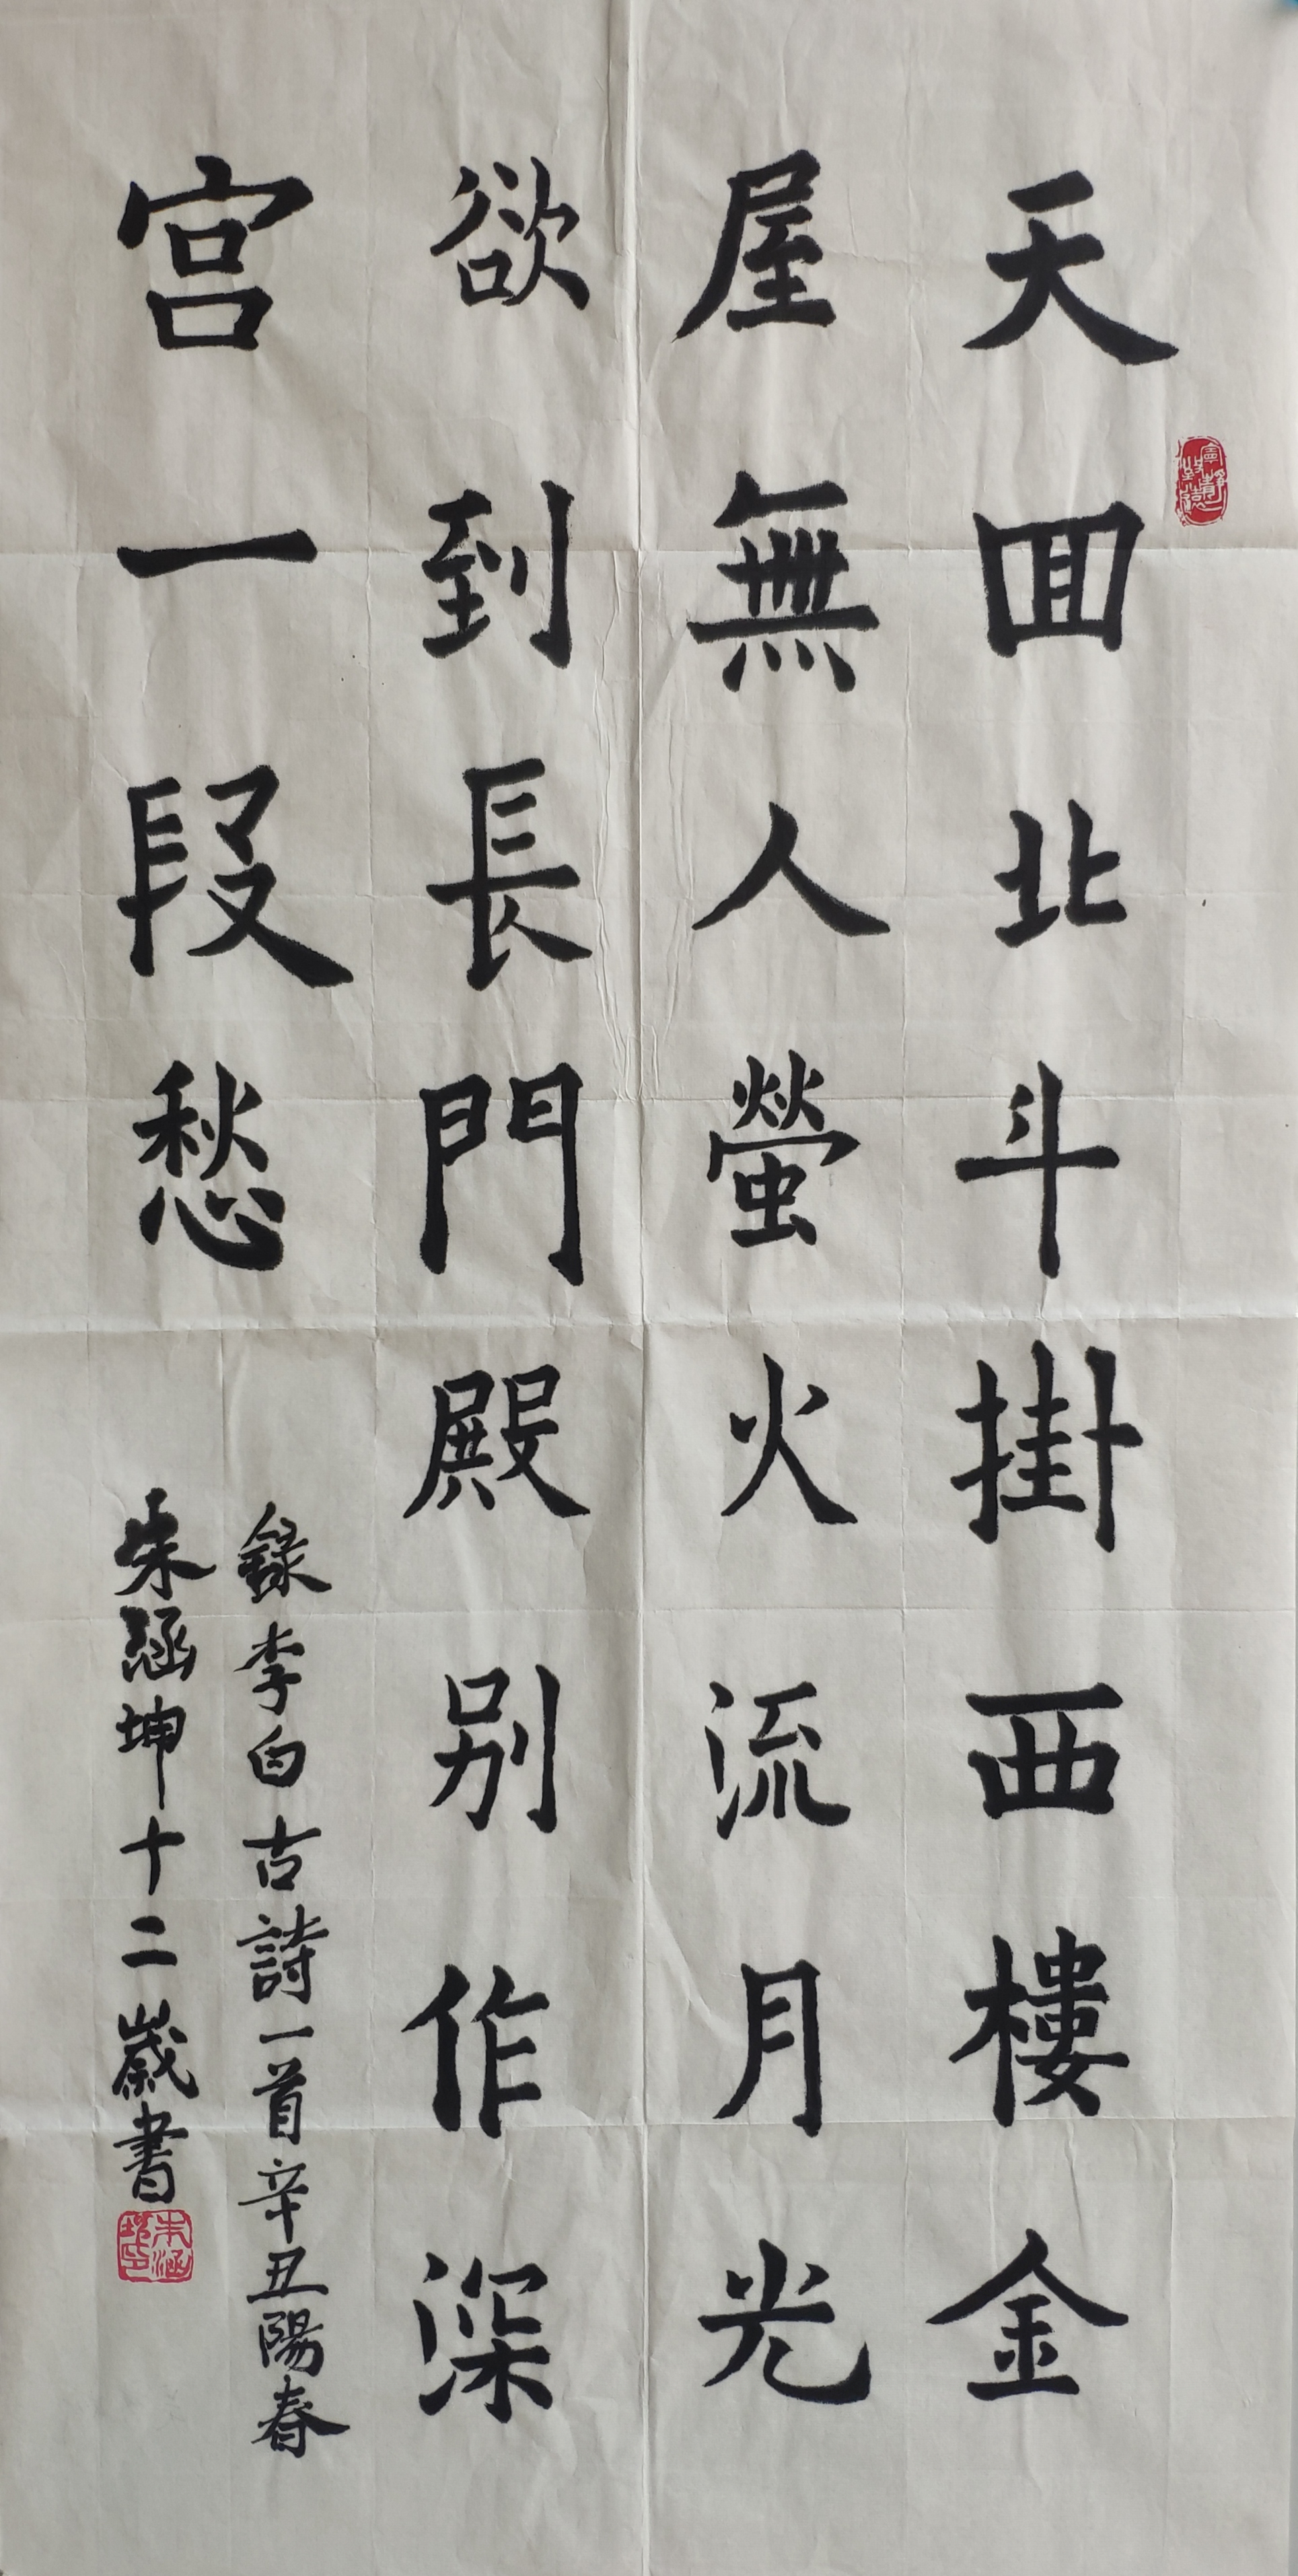 天回北斗掛西樓金
屋無人螢火流月光
欲到長門殿別作深
宮一段愁
錄李白古詩一首辛丑陽春
朱涵坤十二歲書
寧靜致遠